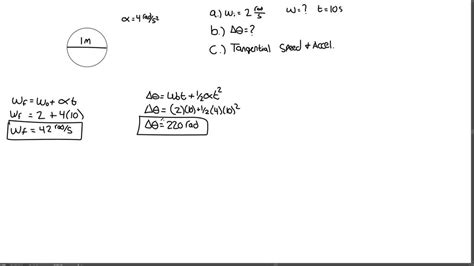 1m
α = 4 rad/s²
a.) ωi = 2 rad/s  ω = ?  t = 10s
b.) Δθ = ?
c.) Tangential Speed & Accel.
ωf = ω0 + αt
ωf = 2 + 4(10)
ωf = 42 rad/s
Δθ = ω0t + 1/2αt²
Δθ = (2)(10) + 1/2(4)(10)²
Δθ = 220 rad